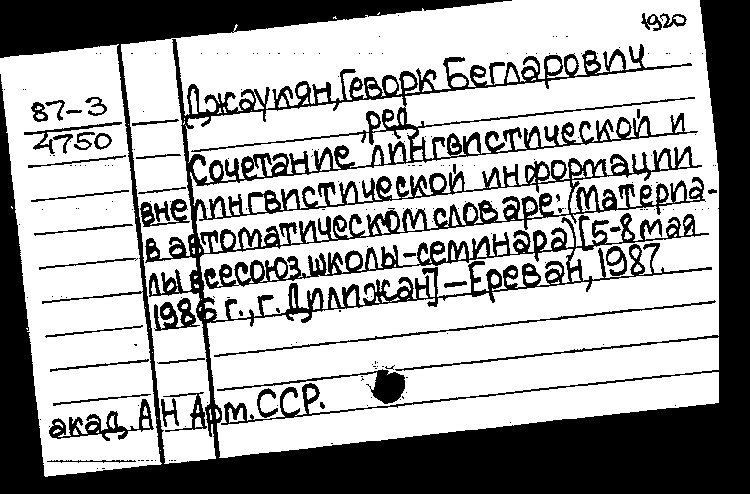 1920
87-3
4750
Джаукян, Геворк Бегларович
, ред.
Сочетание лингвистической и
внелингвистической информации
в автоматическом словаре: (Материа-
лы всесоюз. школы-семинара) [5-8 мая
1986 г., г. Дилижан]. — Ереван, 1987.
акад. АН Арм. ССР.